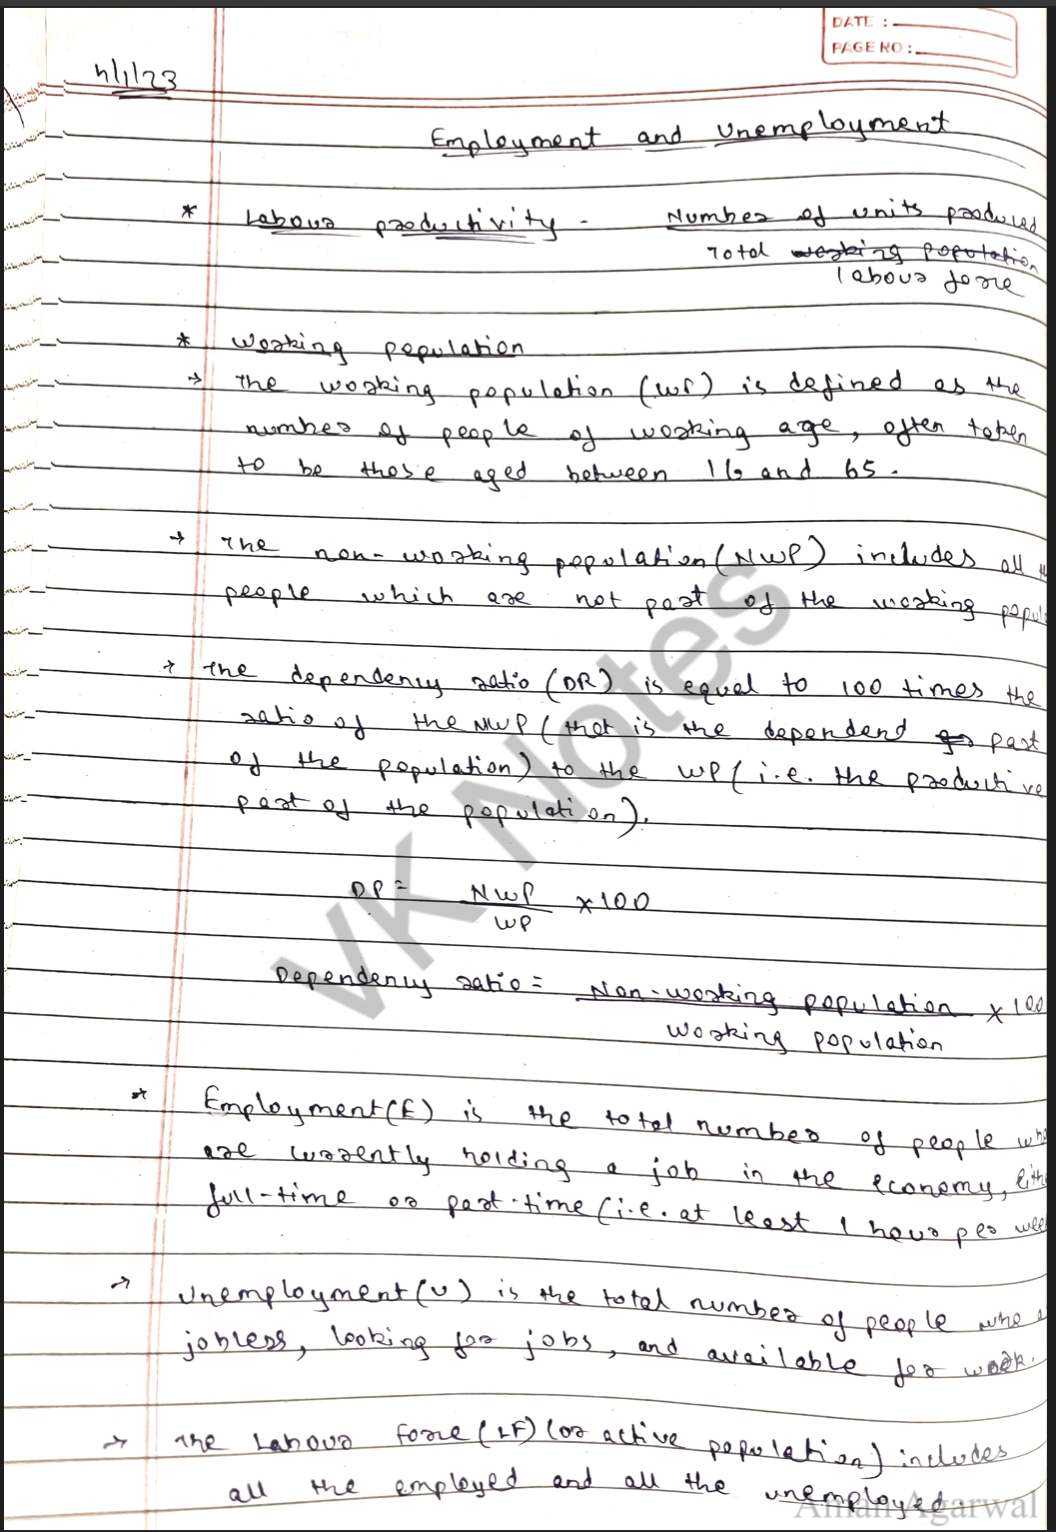 DATE :
PAGE NO :
Employment and Unemployment
* Labour productivity - Number of units produced
Total working population
labour force
* Working population
→ The working population (WP) is defined as the
number of people of working age, often taken
to be those aged between 16 and 65.
→ The non-working population (NWP) includes all
people which are not part of the working popul
→ The dependency ratio (DR) is equal to 100 times the
ratio of the NWP (that is the dependend part
of the population) to the WP (i.e. the productive
part of the population).
DP = NWP × 100
WP
Dependency ratio = Non-working population × 100
Working population
* Employment (E) is the total number of people who
are currently holding a job in the economy, eithe
full-time or part-time (i.e. at least 1 hour per wee
→ Unemployment (U) is the total number of people who a
jobless, looking for jobs, and available for work.
→ The Labour Force (LF) (or active population) includes
all the employed and all the unemployed.
VK Notes
Aman Agarwal